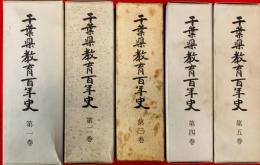 千葉県教育百年史
第一巻
千葉県教育百年史
第二巻
千葉県教育百年史
第三巻
千葉県教育百年史
第四巻
千葉県教育百年史
第五巻